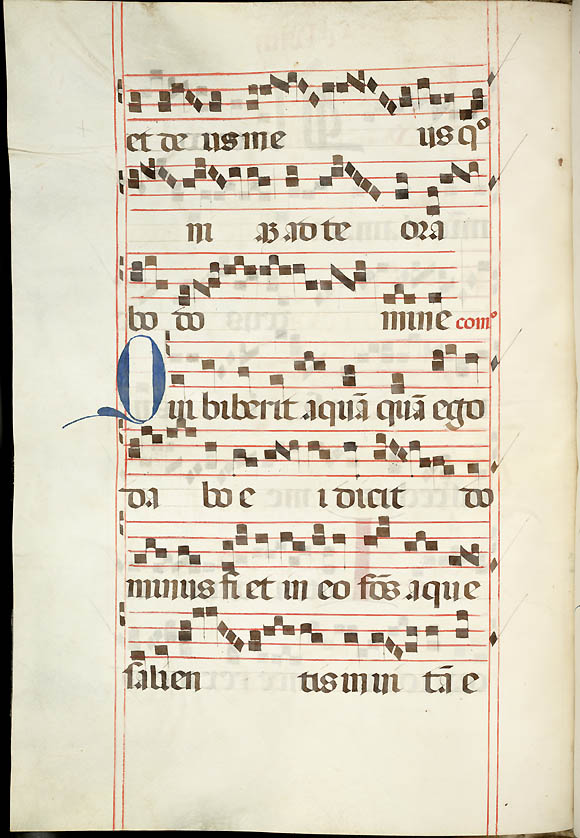 et de us me us qº
ni ab ad te ora
bo do mine comº
Qui biberit aquā quā ego
da bo e i dicit do
minus fi et in eo fōs aque
salien tis in vi tā e